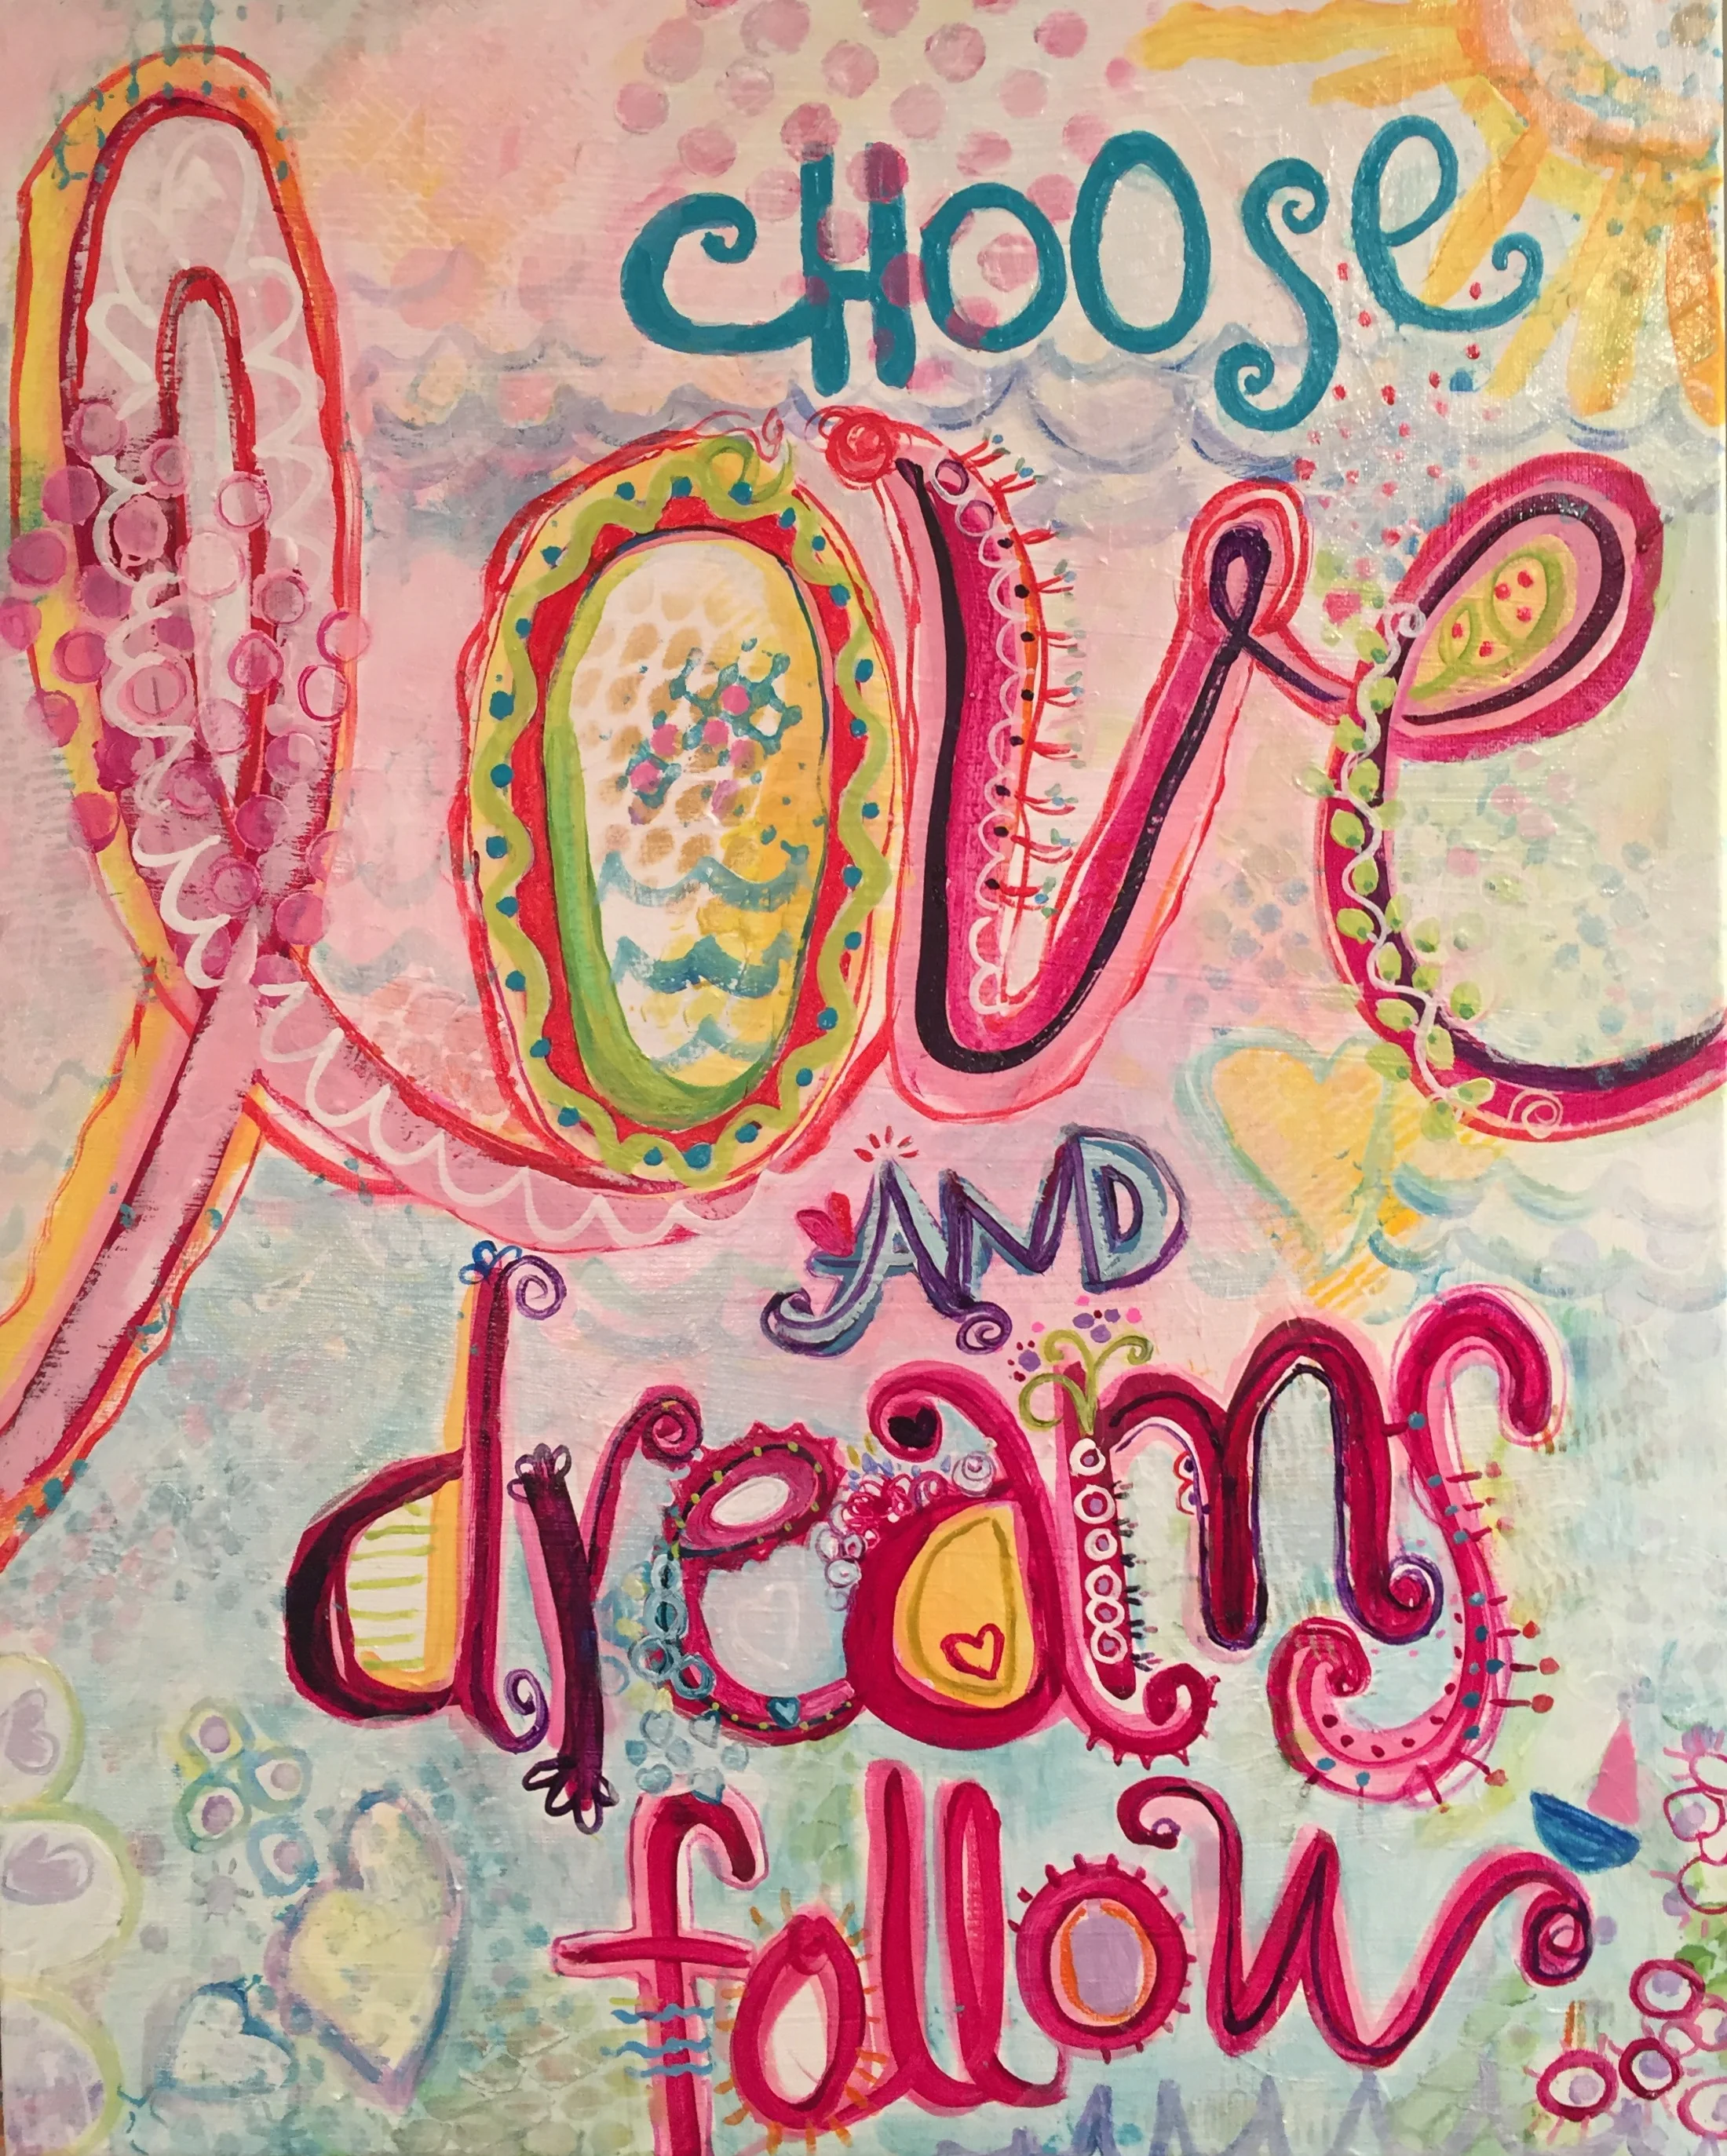 CHOOSE
love
AND
dreams
follow